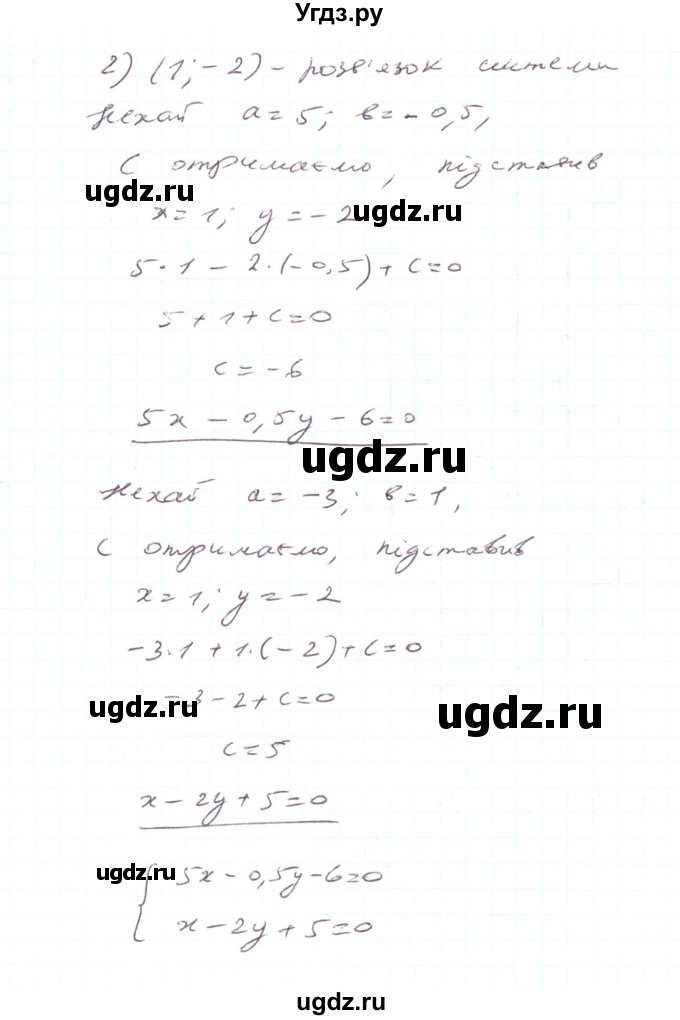 Угдз.ру
2) (1; -2) - розв'язок системи
Нехай a = 5; в = -0,5,
С отримаємо, підставив
ugdz.ru
x = 1; y = -2
ugdz.ru
5·1 - 2·(-0,5) + c = 0
5 + 1 + c = 0
c = -6
5x - 0,5y - 6 = 0
ugdz.ru
Нехай a = -3; в = 1,
С отримаємо, підставив
x = 1; y = -2
-3·1 + 1·(-2) + c = 0
ugdz.ru
-3 - 2 + c = 0
ugdz.ru
c = 5
x - 2y + 5 = 0
ugdz.ru
{ 5x - 0,5y - 6 = 0
x - 2y + 5 = 0
ugdz.ru